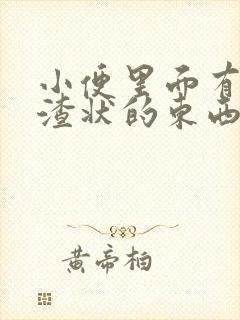 小便里面有
渣状的东西
黄帝柏